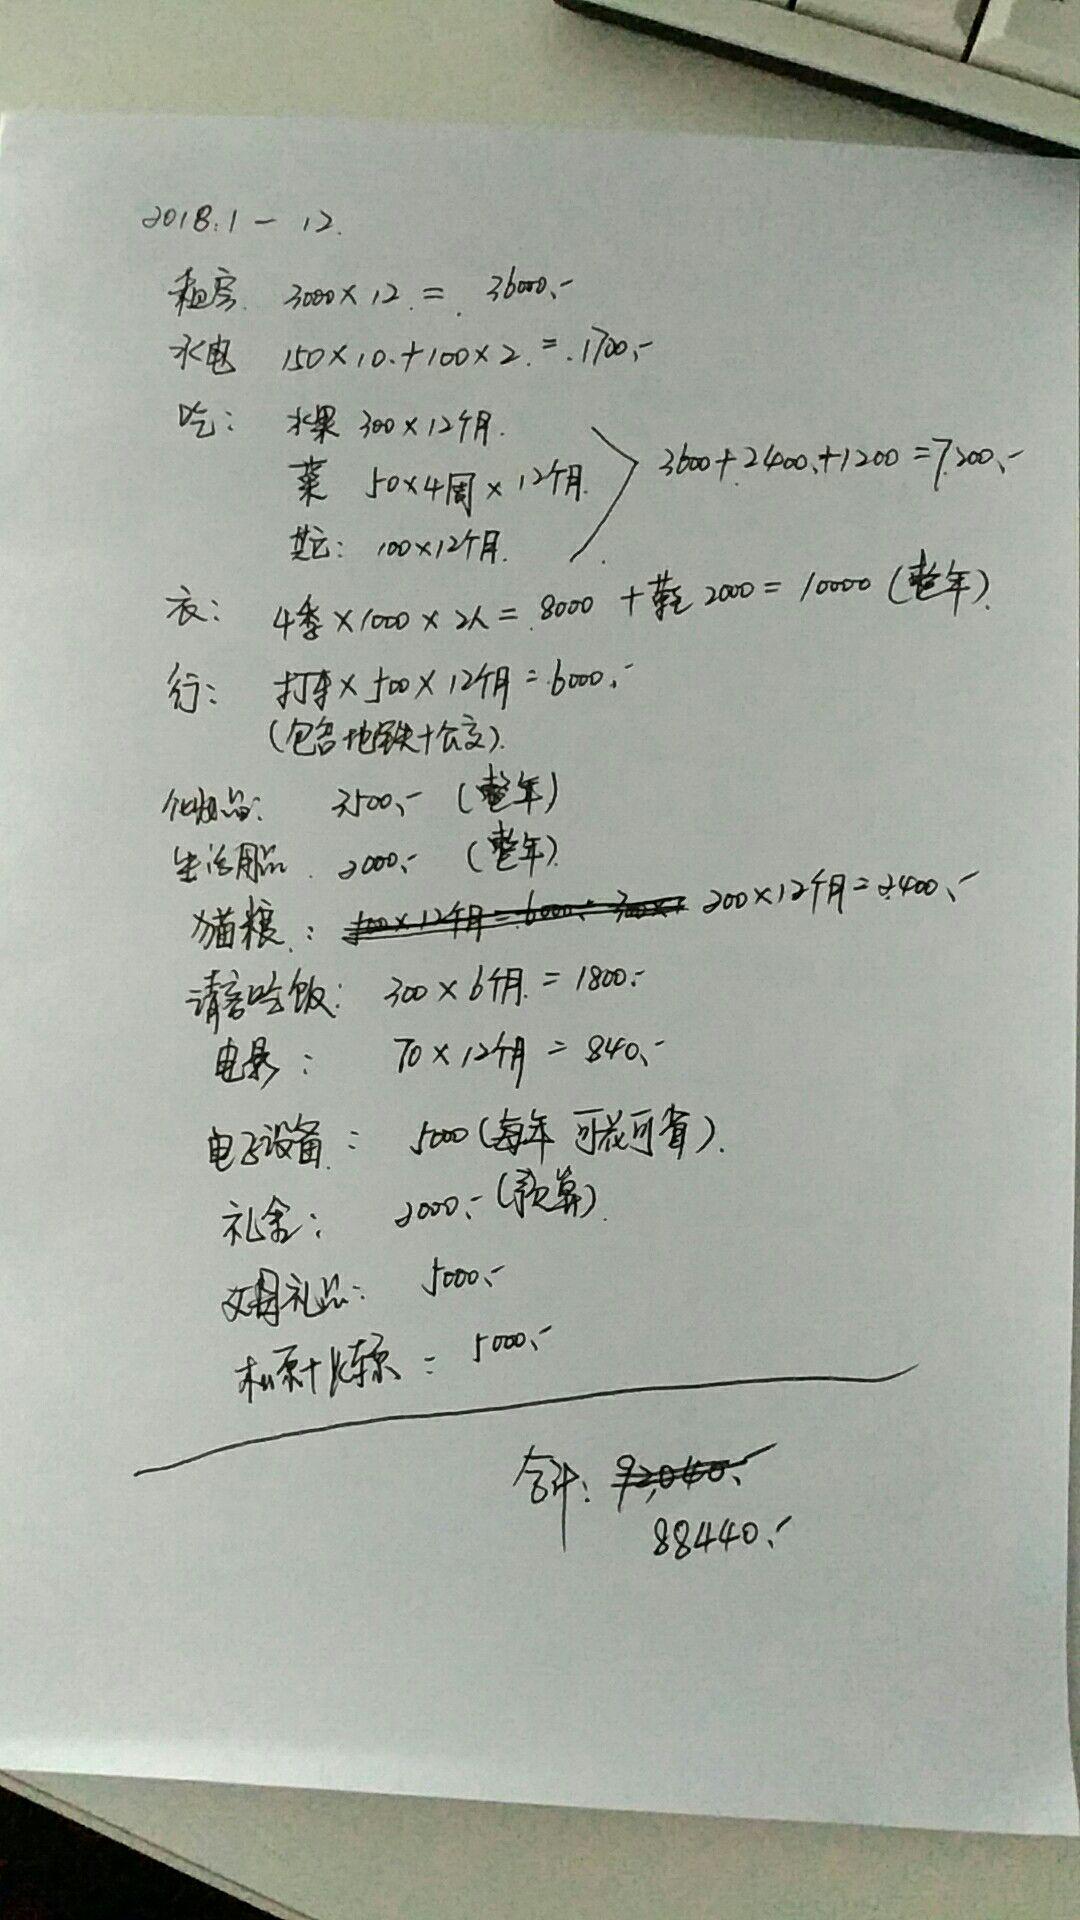 2018.1 — 12.
租房 3000×12 = 36000.-
水电 150×10+100×2 = 1700.-
吃: 水果 300×12个月.
菜 50×4周×12个月. 3600+2400+1200=7200.-
其它: 100×12个月.
衣: 4季×1000×2人=8000 +鞋2000=10000 (整年).
行: 打车×500×12个月=6000.-
(包含地铁+公交).
化妆品: 3500.- (整年)
生活用品 2000.- (整年).
猫粮: 500×12个月=6000.- 300× 200×12个月=2400.-
请客吃饭: 300×6个月=1800.-
电影: 70×12个月=840.-
电子设备: 5000(每年 可花可省).
礼金: 2000.-(预算).
礼品: 5000.-
松原+ : 5000.-
合计: 92,040.-
88440.-